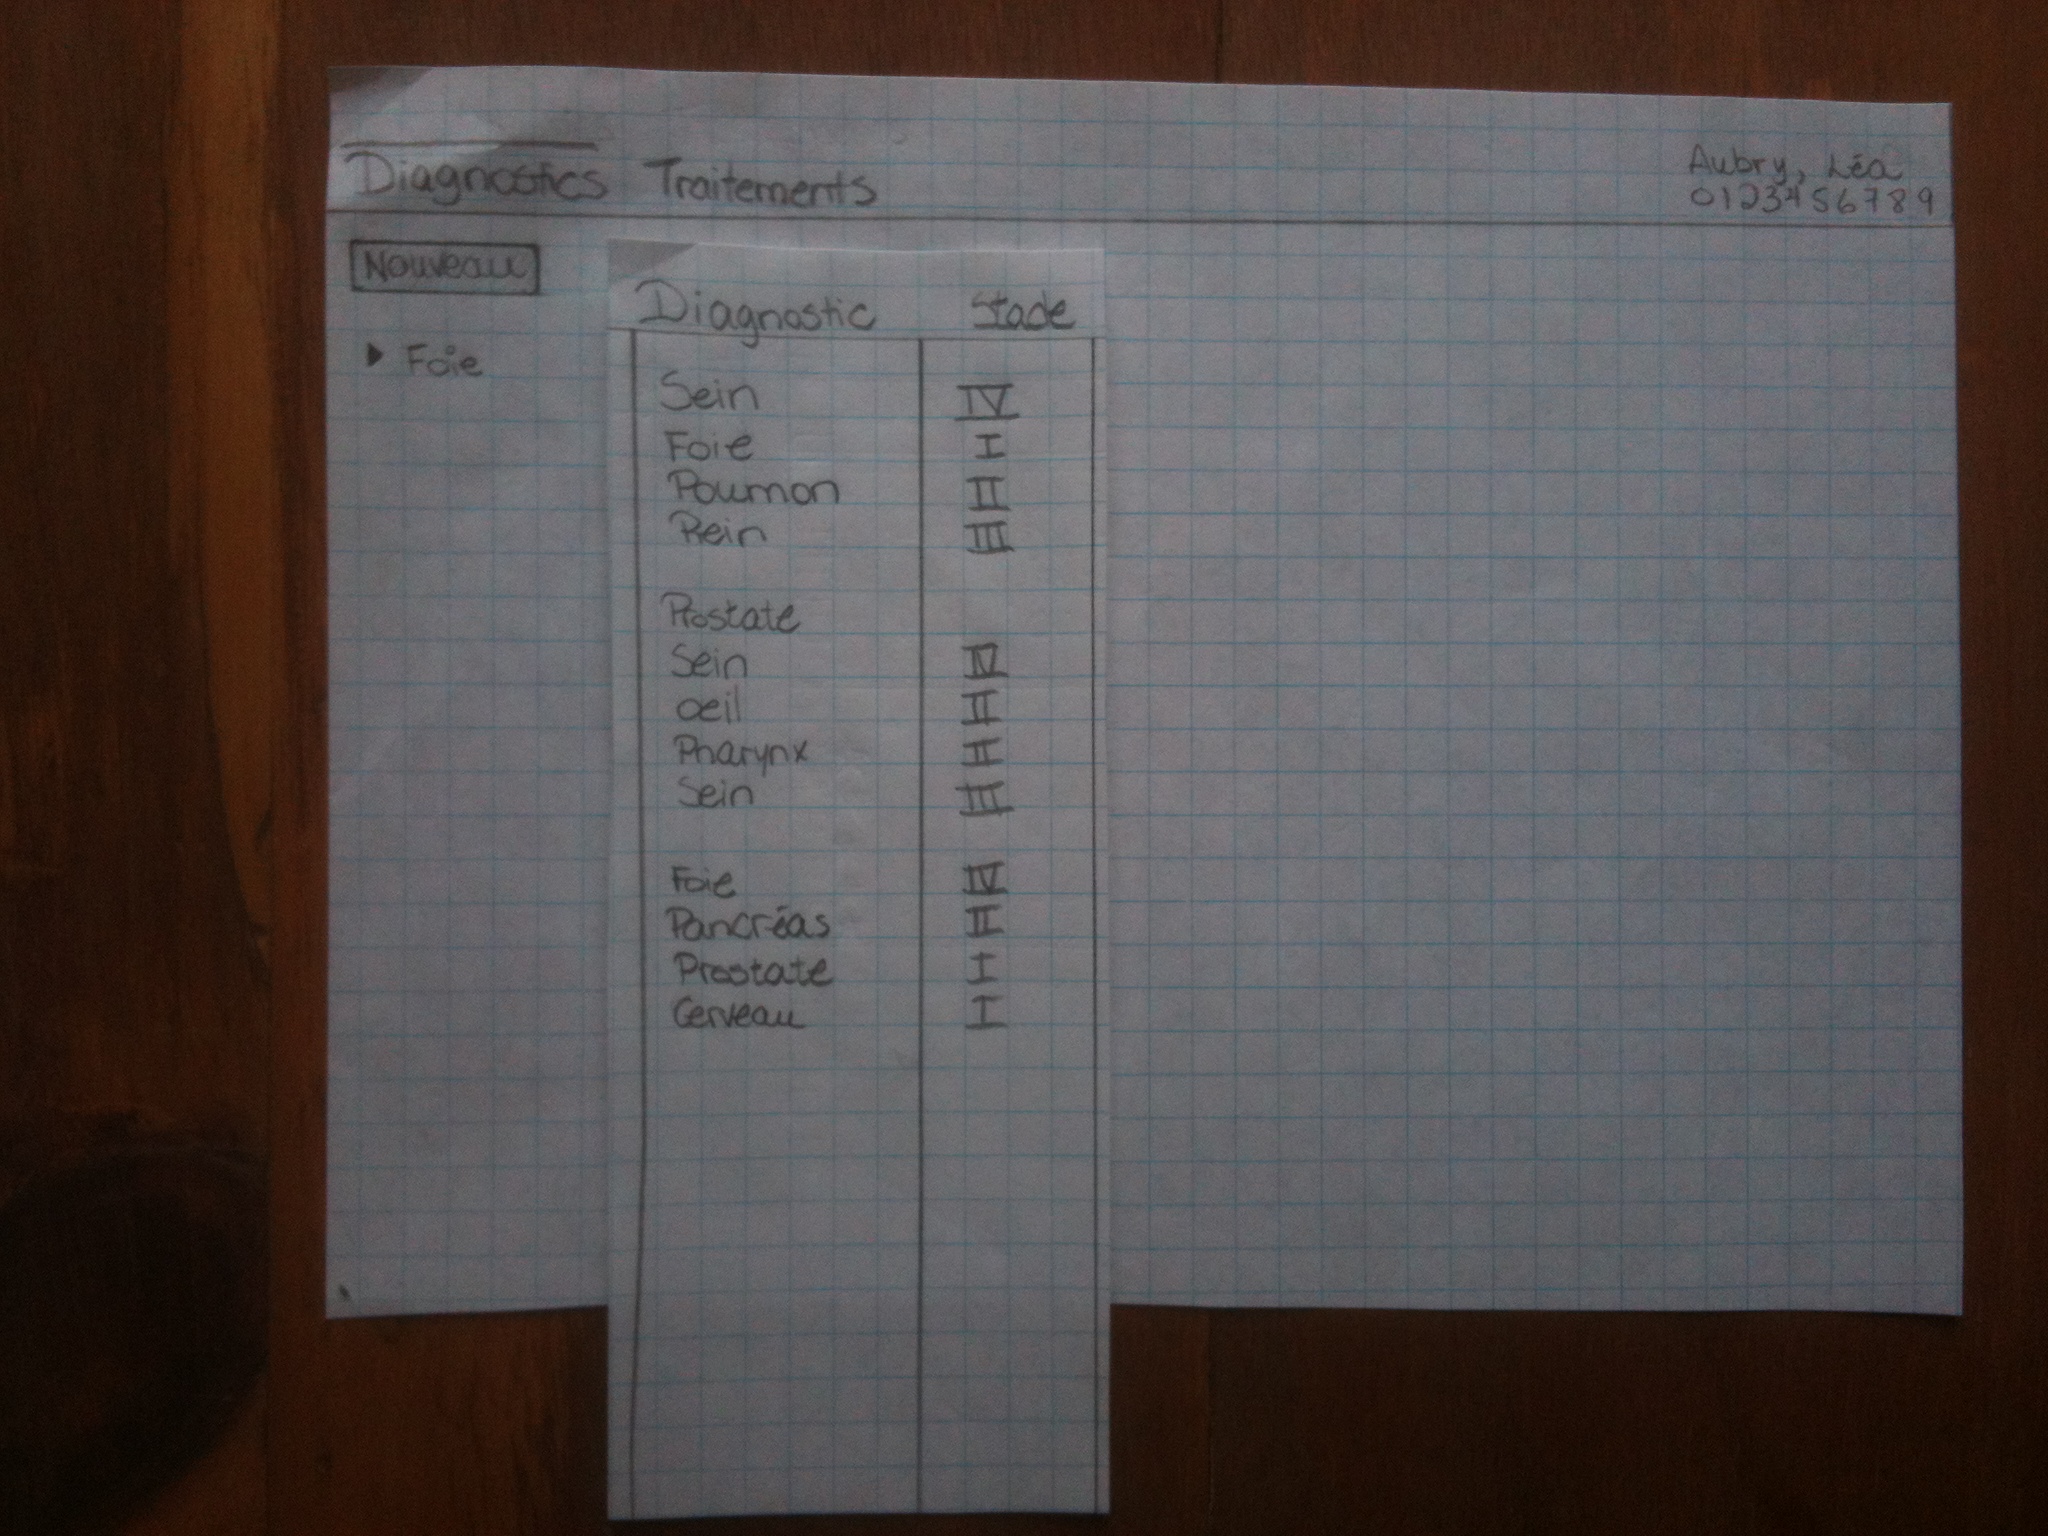 Diagnostics Traitements
Aubry, Léa
0123456789
Nouveau
Foie
Diagnostic Stade
Sein IV
Foie I
Poumon II
Rein III
Prostate
Sein IV
Oeil II
Pharynx II
Sein III
Foie IV
Pancréas II
Prostate I
Cerveau I